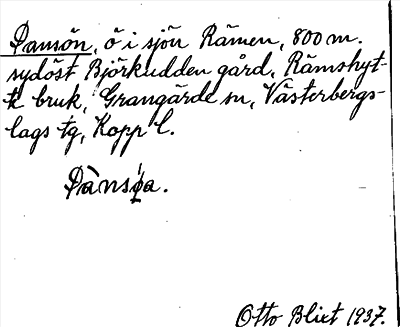 Dansön, ö i sjön Rämen, 800 m.
sydöst Björkudden gård, Rämshyt-
te bruk, Grangärde sn, Västerbergs-
lags tg, Kopp l.
Dànsǫa.
Otto Blixt 1937.